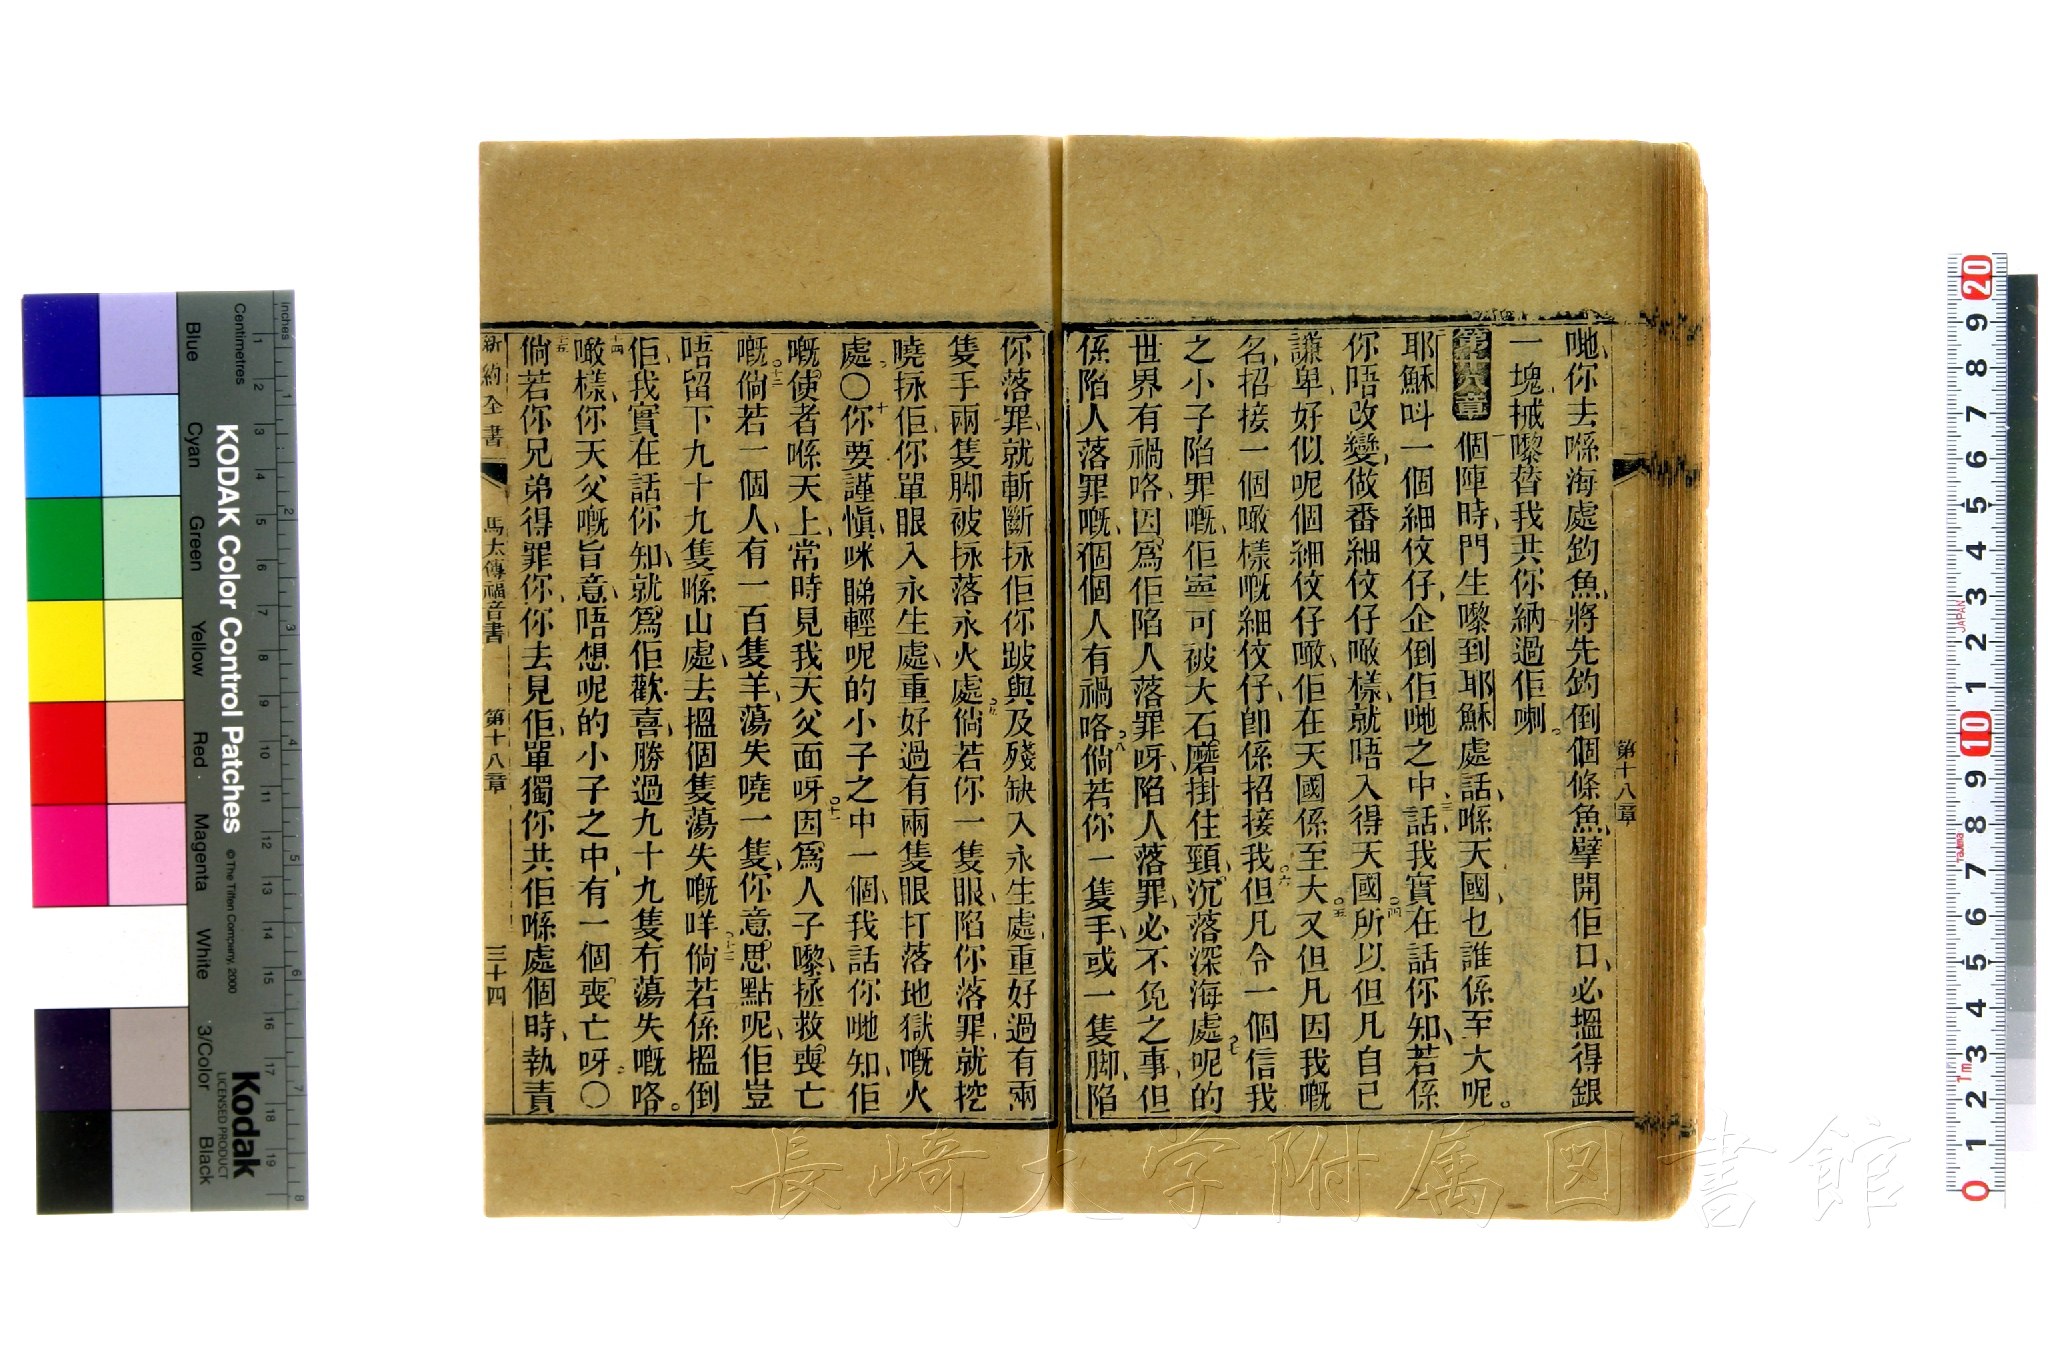 第十八章
哋、你去喺海處釣魚、將先釣倒個條魚、擘開佢口、必搵得銀
一塊、揻嚟替我共你納過佢喇。
第十八章 一個陣時、門生嚟到耶穌處話、喺天國、乜誰係至大呢。
二耶穌呌一個細佼仔、企倒佢哋之中、三話、我實在話你知、若係
你唔改變、做番細佼仔噉樣、就唔入得天國。四所以但凡自己
謙卑、好似呢個細佼仔噉、佢在天國係至大。五又但凡因我嘅
名、招接一個噉樣嘅細佼仔、卽係招接我。六但凡令一個信我
之小子陷罪嘅、佢寧可被大石磨掛住頸、沉落深海處。七呢的
世界有禍咯、因爲佢陷人落罪呀、陷人落罪、必不免之事、但
係陷人落罪嘅、個個人有禍咯。八倘若你一隻手、或一隻脚、陷
你落罪、就斬斷𢱕佢、你跛與及殘缺入永生處、重好過有兩
隻手兩隻脚、被𢱕落永火處。九倘若你一隻眼、陷你落罪、就挖
曉𢱕佢、你單眼入永生處、重好過有兩隻眼、打落地獄嘅火
處。〇十你要謹愼、咪睇輕呢的小子之中一個、我話你哋知、佢
嘅使者喺天上、常時見我天父面呀。十一因爲人子嚟、拯救喪亡
嘅。十二倘若一個人、有一百隻羊、蕩失曉一隻、你意思點呢、佢豈
唔留下九十九隻喺山處、去搵個隻蕩失嘅咩。十三倘若係搵倒
佢、我實在話你知、就爲佢歡喜、勝過九十九隻冇蕩失嘅咯。
十四噉樣、你天父嘅旨意、唔想呢的小子之中、有一個喪亡呀。〇
十五倘若你兄弟得罪你、你去見佢、單獨你共佢喺處個時、執責
新約全書 馬太傳福音書 第十八章 三十四
長崎大学附属図書館
KODAK Color Control Patches
© The Tiffen Company, 2000
Kodak
LICENSED PRODUCT
Inches
Centimetres
Blue
Cyan
Green
Yellow
Red
Magenta
White
3/Color
Black
1 2 3 4 5 6 7 8
1 2 3 4 5 6 7 8 9 10 11 12 13 14 15 16 17 18 19
20 9 8 7 6 5 4 3 2 1 10 9 8 7 6 5 4 3 2 1 0
JAPAN
Tajima
1m